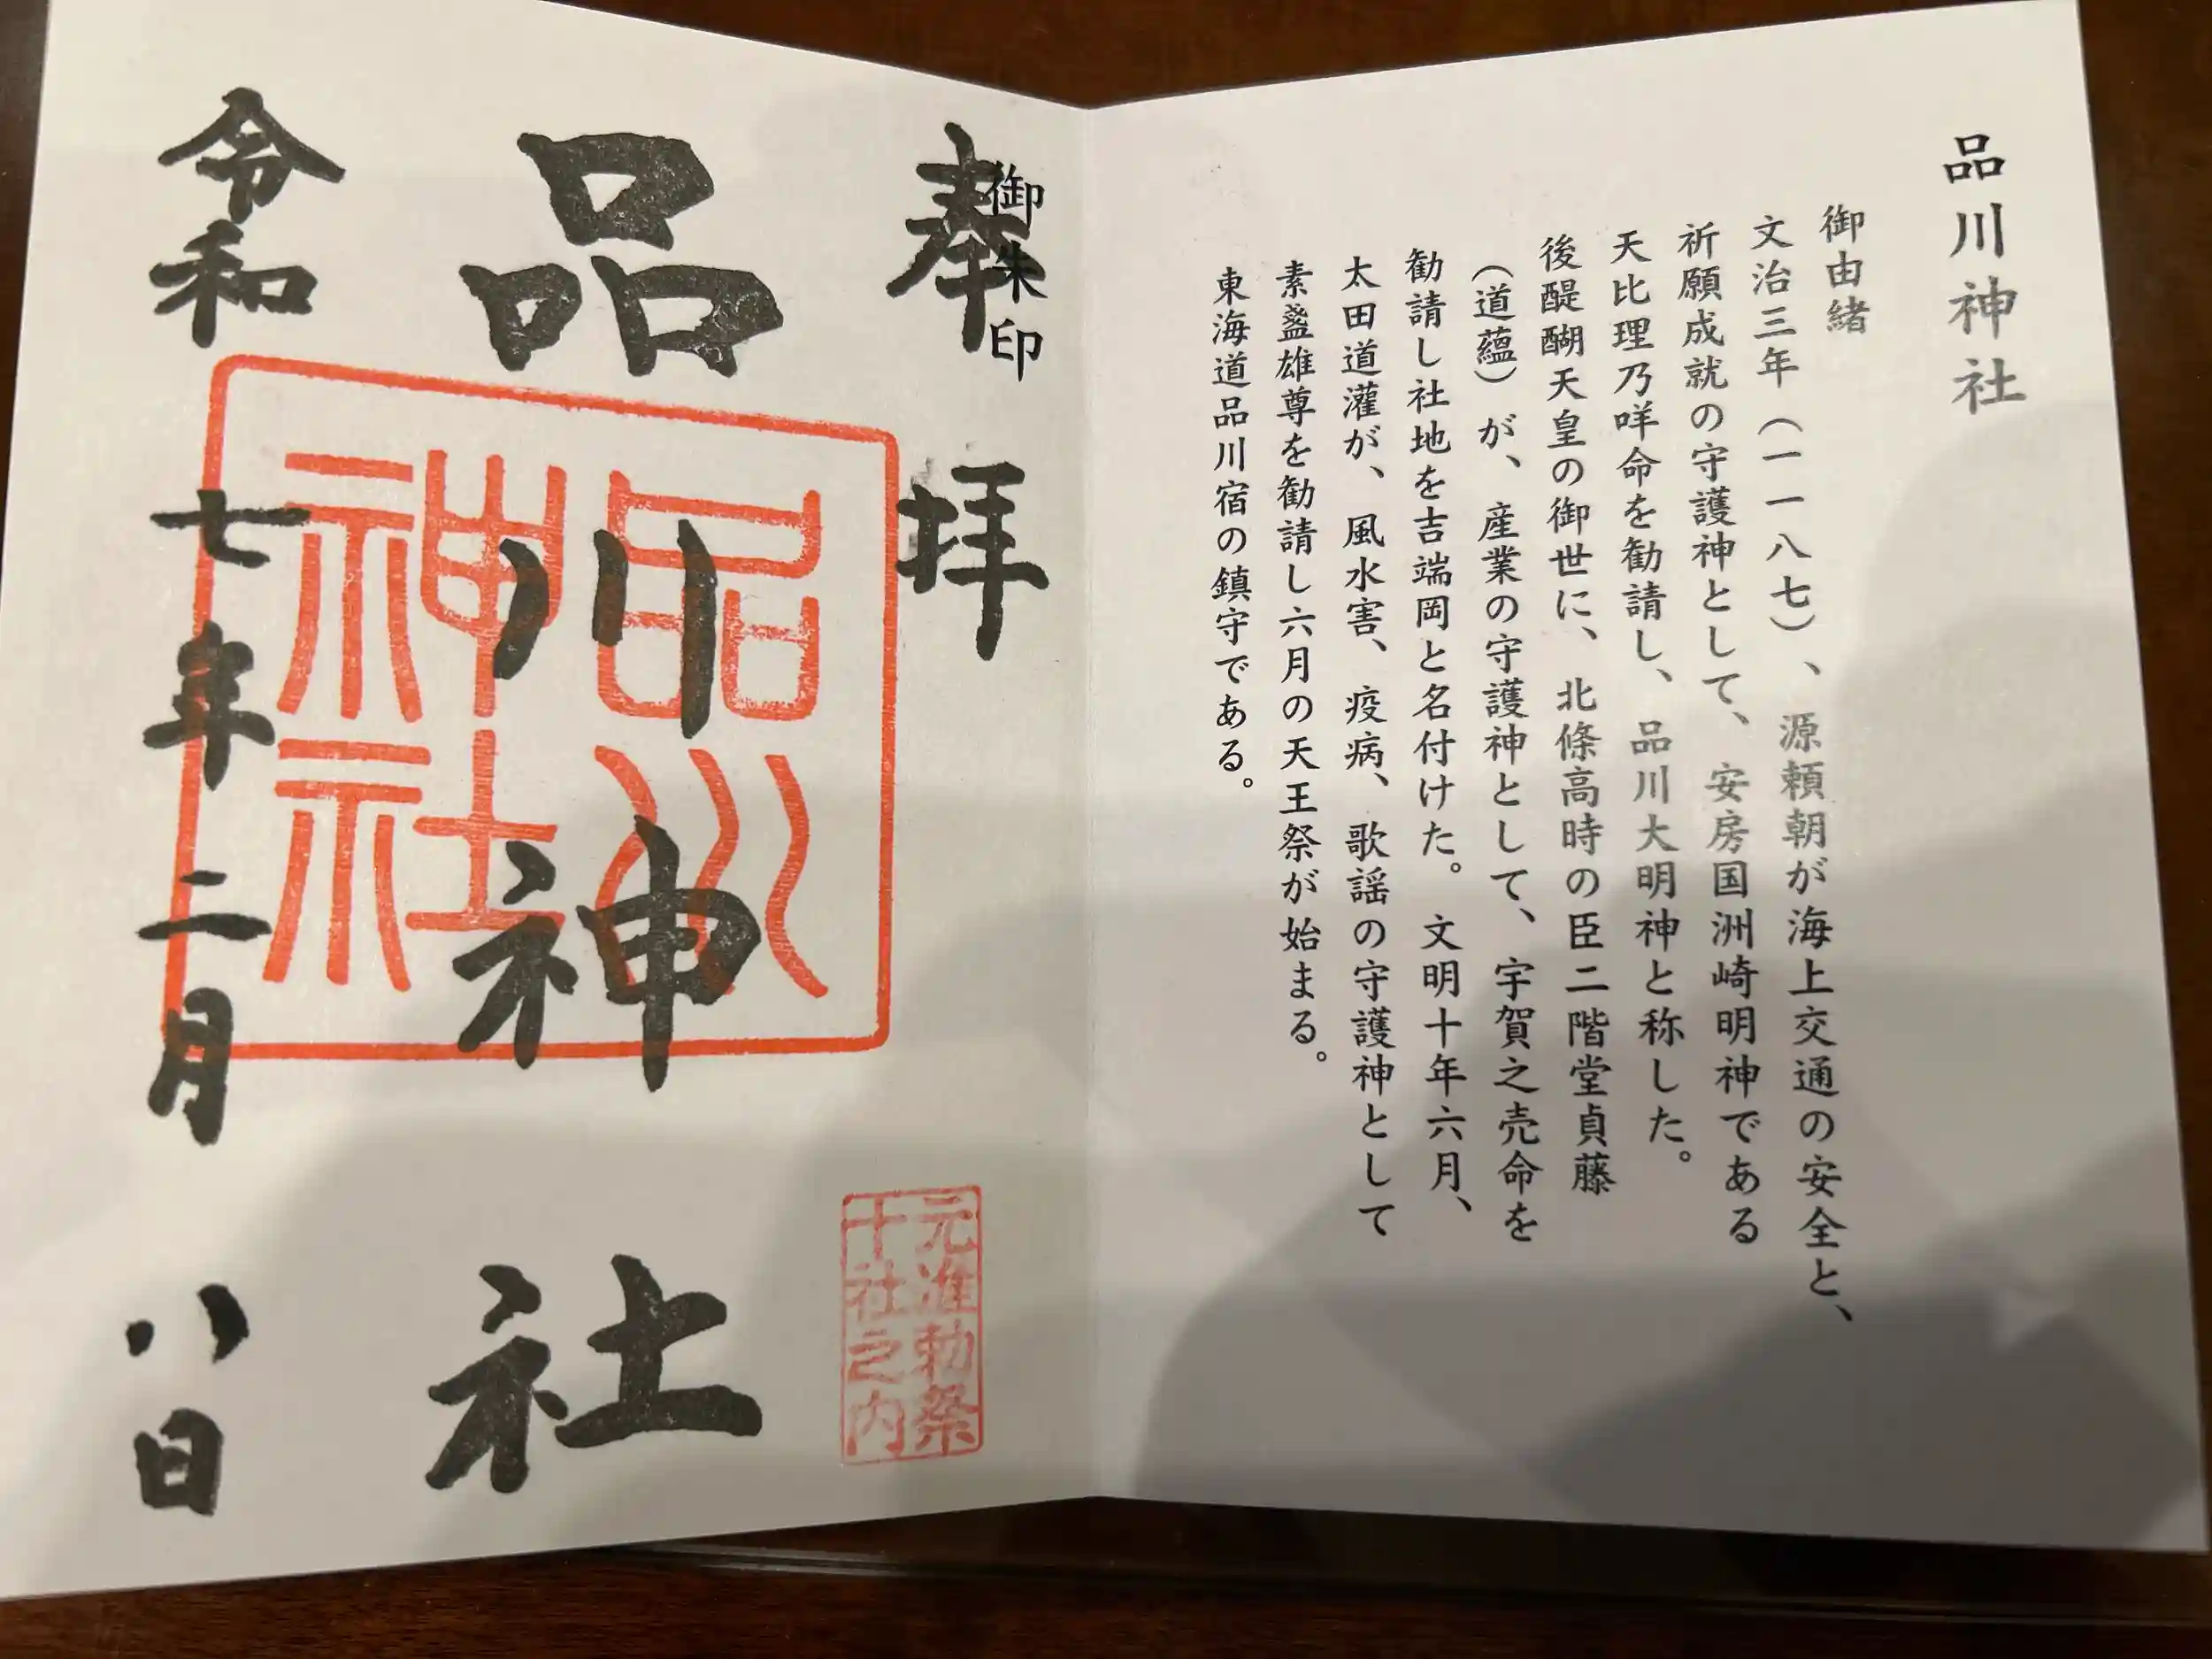 品川神社
御由緒
文治三年（一一八七）、源頼朝が海上交通の安全と、
祈願成就の守護神として、安房国洲崎明神である
天比理乃咩命を勧請し、品川大明神と称した。
後醍醐天皇の御世に、北條高時の臣二階堂貞藤
（道蘊）が、産業の守護神として、宇賀之売命を
勧請し社地を吉端岡と名付けた。文明十年六月、
太田道灌が、風水害、疫病、歌謡の守護神として
素盞雄尊を勧請し六月の天王祭が始まる。
東海道品川宿の鎮守である。
御朱印
奉拝
元准勅祭
十社之内
品川神社
品川
神社
令和七年二月八日